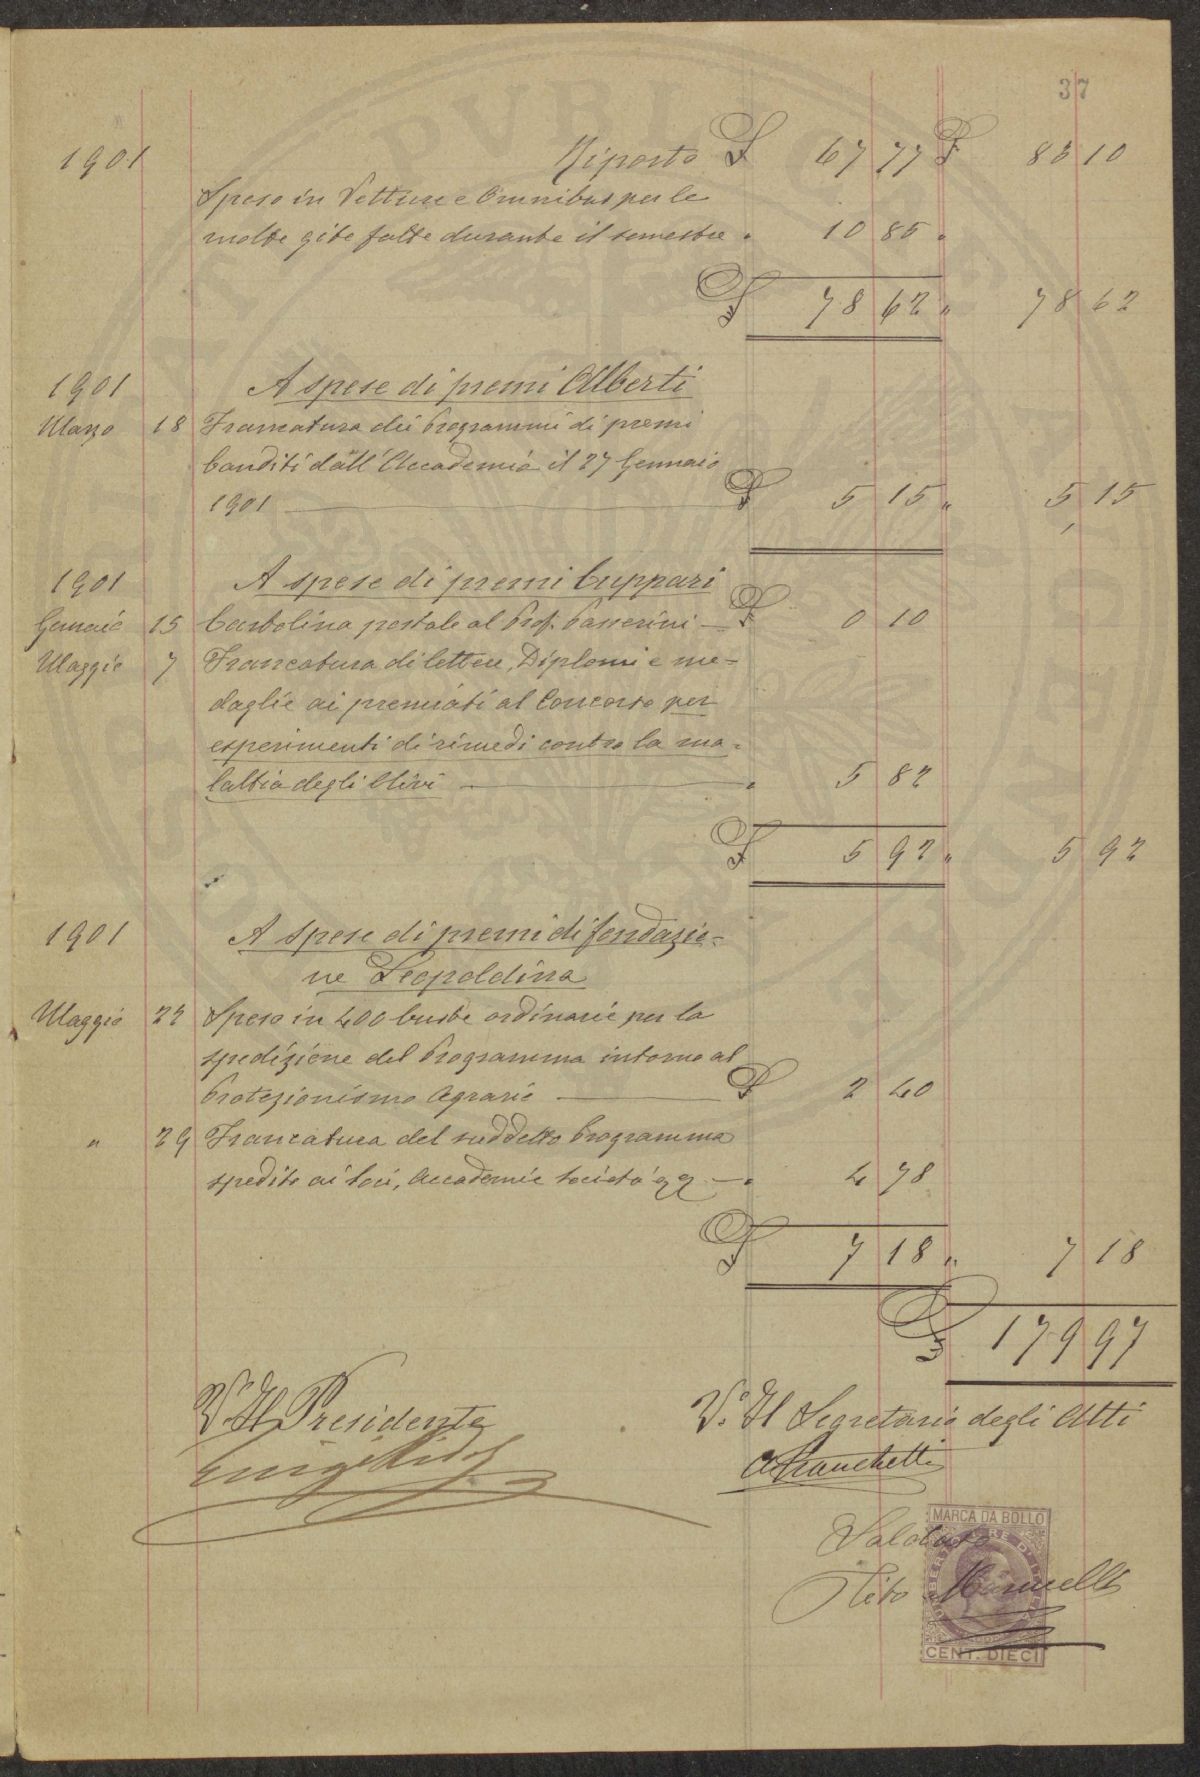 37
1901 Riporto £ 67 77 £ 83 10
Spese in Vetture e Omnibus per le
molte gite fatte durante il semestre " 10 85 "
£ 78 62 " 78 62
1901 A spese di premi Alberti
Marzo 18 Francatura dei Programmi di premi
banditi dall'Accademia il 27 Gennaio
1901 £ 5 15 " 5 15
1901 A spese di premi Cuppari
Gennaio 15 Cartolina postale al Prof. Passerini £ 0 10
Maggio 7 Francatura di lettere, Diplomi e me=
daglie ai premiati al Concorso per
esperimenti di rimedi contro la ma=
lattia degli Olivi " 5 82
£ 5 92 " 5 92
1901 A spese di premi di fondazio=
ne Leopoldina
Maggio 22 Spese in 400 buste ordinarie per la
spedizione del Programma intorno al
Protezionismo Agrario £ 2 40
" 29 Francatura del suddetto Programma
spedito ai Soci, Accademie Società " 4 78
£ 7 18 " 7 18
£ 179 97
V. Il Presidente
V. Il Segretario degli Atti
Luigi Ridolfi
A Franchetti
Saldato
Tito
MARCA DA BOLLO
CENT. DIECI